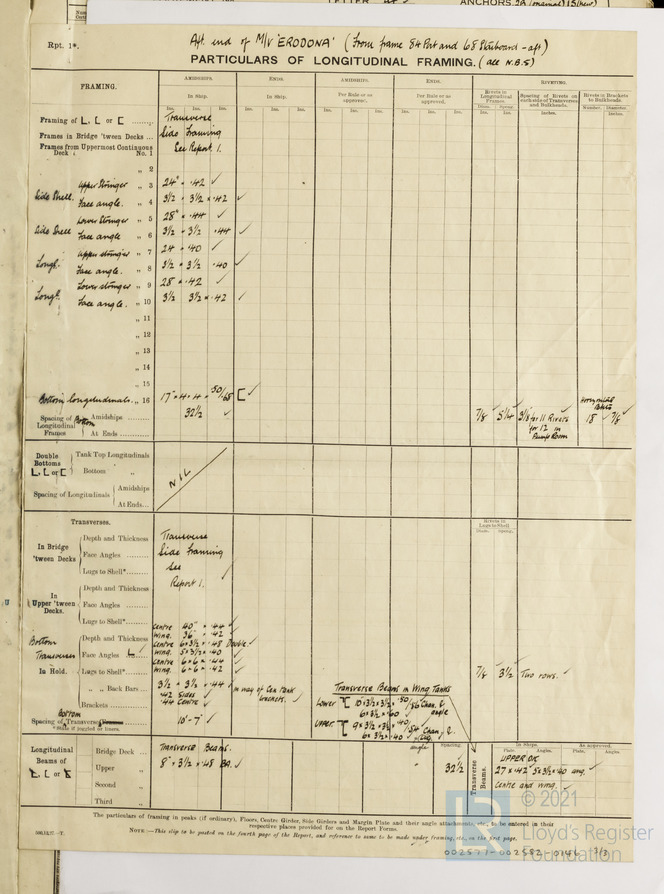 ANCHORS.
Rpt. 1*.
Aft. end of M/V 'ERODONA' (From frame 84 Port and 68 Starboard - aft)
PARTICULARS OF LONGITUDINAL FRAMING. (all N.B.S)
FRAMING.
AMIDSHIPS. ENDS. AMIDSHIPS. ENDS. RIVETING.
In Ship. In Ship. Per Rule or as approved. Per Rule or as approved.
Rivets in Longitudinal Frames. Spacing of Rivets on each side of Transverses and Bulkheads. Rivets in Brackets to Bulkheads.
Ins. Ins. Ins. Ins. Ins. Ins. Ins. Ins. Ins. Ins. Ins. Ins. Diam. Spcng. Inches. Number. Diameter.
Framing of L, [ or [ Transverse
Frames in Bridge 'tween Decks ... Side Framing
Frames from Uppermost Continuous Deck No. 1 See Report 1.
„ 2
Upper Stringer „ 3 24" × .42 ✓
Side Shell. Face angle. „ 4 3½ × 3½ × .42 ✓
Lower Stringer „ 5 28" × .44 ✓
Side Shell Face angle „ 6 3½ × 3½ × .44 ✓
Upper stringer „ 7 24 × .40 ✓
Longl. Face angle. „ 8 3½ × 3½ × .40 ✓
Lower stringer „ 9 28 × .42 ✓
Longl. Face angle. „ 10 3½ 3½ × .42 ✓
„ 11
„ 12
„ 13
„ 14
„ 15
Bottom longitudinals „ 16 17 × 4 × 4 × .50/.68 [ ✓
Spacing of Bottom Longitudinal Frames Amidships 32½ ✓ 7/8 5¼ 3⅛ for 11 Rivets for 12 in Pump Room 18 ✓ 7/8 ✓
At Ends
Double Bottoms L, [ or [ Tank Top Longitudinals
Bottom „
NIL
Spacing of Longitudinals Amidships
At Ends...
Transverses.
Rivets in Lugs to Shell
Diam. Spcng.
In Bridge 'tween Decks Depth and Thickness Transverse
Face Angles Side Framing
Lugs to Shell* See
In Upper 'tween Decks. Depth and Thickness Report 1.
Face Angles
Lugs to Shell*
Bottom Transverses In Hold. Depth and Thickness Centre 40" × .44 ✓
Wing. 36" × .42 ✓
Face Angles L Centre 6 × 3½ × .48 Double ✓
Wing. 5 × 3½ × .40 ✓
Lugs to Shell* Centre 6 × 6 × .44 ✓
Wing. 6 × 6 × .42 ✓ 7/8 3½ Two rows. ✓
„ „ Back Bars 3½ × 3½ × .44 ✓ in way of Cen tank brackets. ✓
Brackets .42 Sides
.44 Centre ✓
Spacing of Bottom Transverse Frames 10'-7" ✓
*State if joggled or liners.
Transverse Beams in Wing Tanks
Lower [ 10 × 3½ × 3½ × .50/.56 Chan. &
6 × 3½ × .60 angle
Upper. [ 9 × 3½ × 3½ ×
6 × 3½ × .40
Longitudinal Beams of L, [ or [ Bridge Deck Transverse Beams.
Upper „ 8" × 3½ × .48 BA. ✓
Second „
Third „
Spacing.
32½
Transverse Beams.
In Ships. As approved.
Plate. Angles. Plate. Angles.
UPPER DK
27 × .42 5 × 3½ × .40 ang. ✓
Centre and wing. ✓
The particulars of framing in peaks (if ordinary), Floors, Centre Girder, Side Girders and Margin Plate and their angle attachments, etc., to be entered in their
respective places provided for on the Report Forms.
NOTE.—This slip to be posted on the fourth page of the Report, and reference to same to be made under framing, etc., on the first page.
© 2021
Lloyd's Register
Foundation
002577-002582-0146 2/3